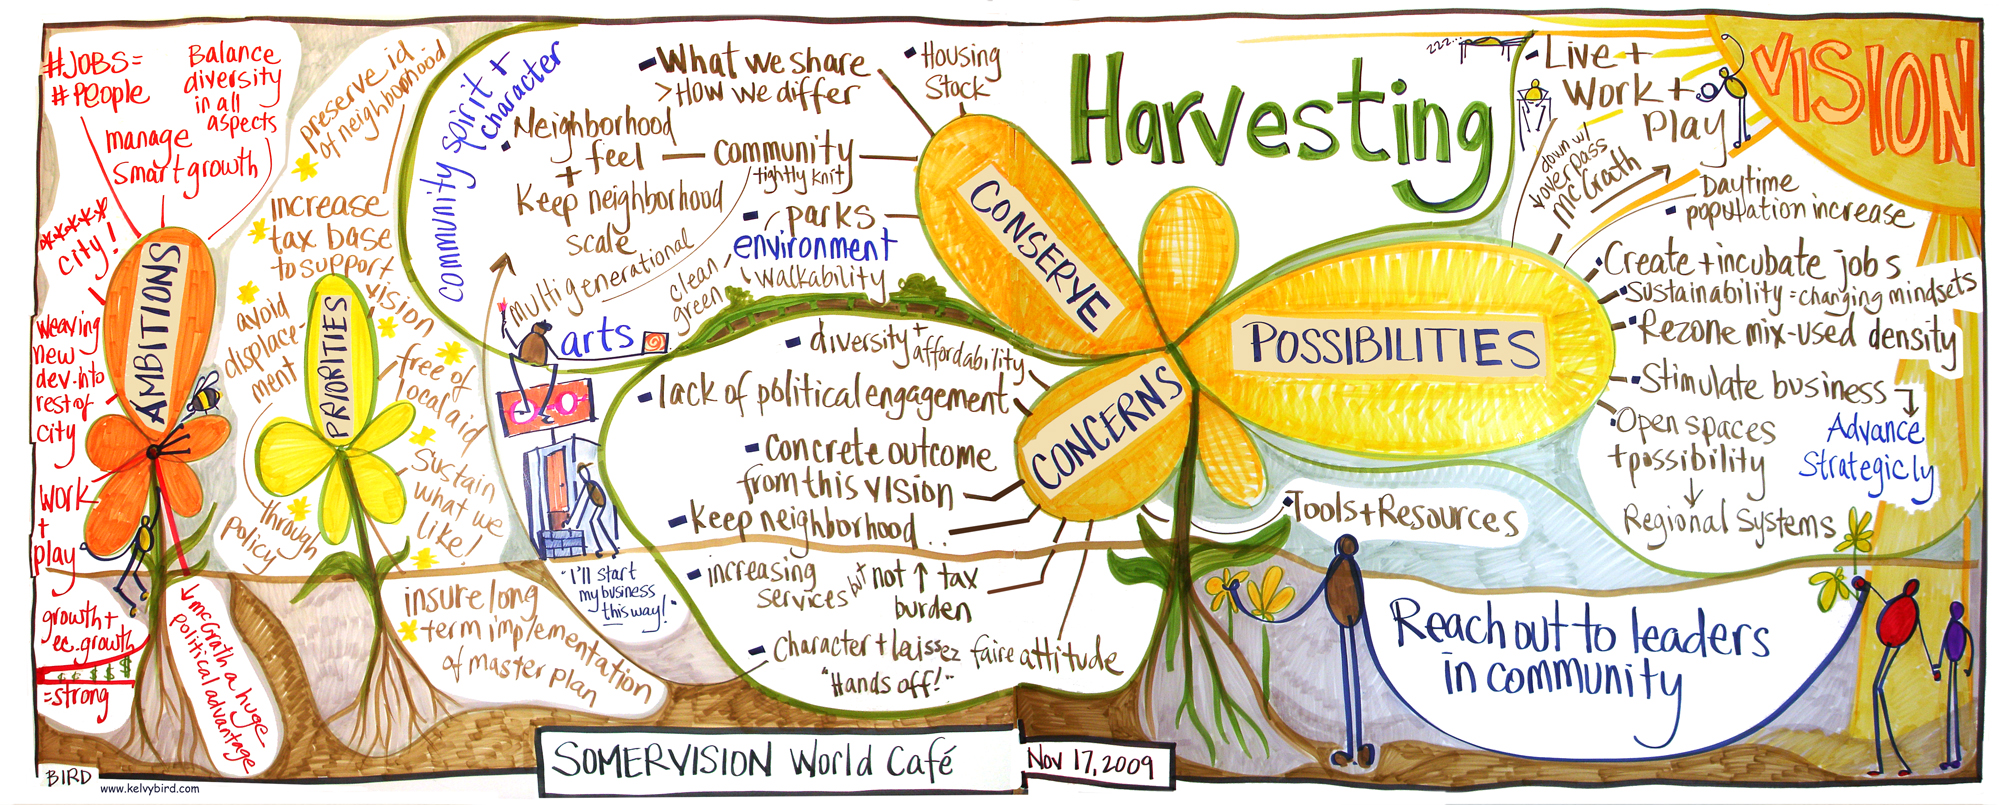 #JOBS=
#People
Balance
diversity
in all
aspects
manage
Smart growth
*****
city!
AMBITIONS
weaving
new
dev. into
rest of
city
work
+
play
growth +
ec. growth
$ $ $ $ $
= strong
↓ McGrath a huge
political advantage
preserve id
of neighborhood
increase
tax base
to support
vision
avoid
displace-
ment
through
policy
PRIORITIES
free of
local aid
Sustain
what we
like!
insure long
term implementation
of master plan
community spirit +
character
What we share
> How we differ
Housing
Stock
Neighborhood
feel
+
Keep neighborhood
scale
community
tightly knit
multigenerational
parks
environment
walkability
clean
green
arts
CONSERVE
"I'll start
my business
this way!"
diversity +
affordability
lack of political engagement
concrete outcome
from this vision
keep neighborhood..
increasing
services
but not ↑ tax
burden
Character + laissez faire attitude
"Hands off!"
CONCERNS
Harvesting
zzz...
Live +
Work +
Play
VISION
down w/
overpass
McGrath
Daytime
population increase
POSSIBILITIES
Create + incubate jobs
Sustainability = changing mindsets
Rezone mix-used density
Stimulate business
Advance
Strategicly
Open spaces
+ possibility
↓
Regional Systems
Tools + Resources
Reach out to leaders
in community
SOMERVISION World Café
Nov 17, 2009
BIRD
www.kelvybird.com